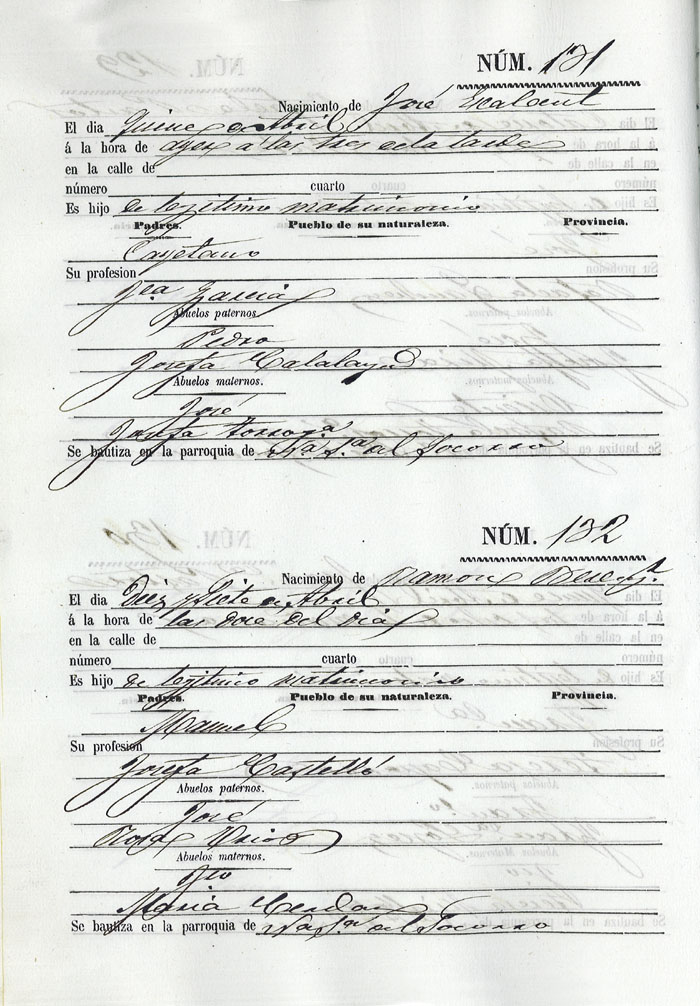 NÚM. 131
Nacimiento de José
El dia Quince de Abril
á la hora de ayer a las tres de la tarde
en la calle de
número cuarto
Es hijo de legitimo matrimonio
Padres. Pueblo de su naturaleza. Provincia.
Cayetano
Su profesion
Fca. Garcia
Abuelos paternos.
Pedro
Josefa Calatayud
Abuelos maternos.
José
Josefa
Se bautiza en la parroquia de Ntra. Sra. del Socorro
NÚM. 132
Nacimiento de Ramon
El dia Diez y Siete de Abril
á la hora de las doce del dia
en la calle de
número cuarto
Es hijo de legitimo matrimonio
Padres. Pueblo de su naturaleza. Provincia.
Manuel
Su profesion
Josefa Castelló
Abuelos paternos.
José
Rosa
Abuelos maternos.
Fco
Maria Cerdan
Se bautiza en la parroquia de Ntra. Sra. del Socorro